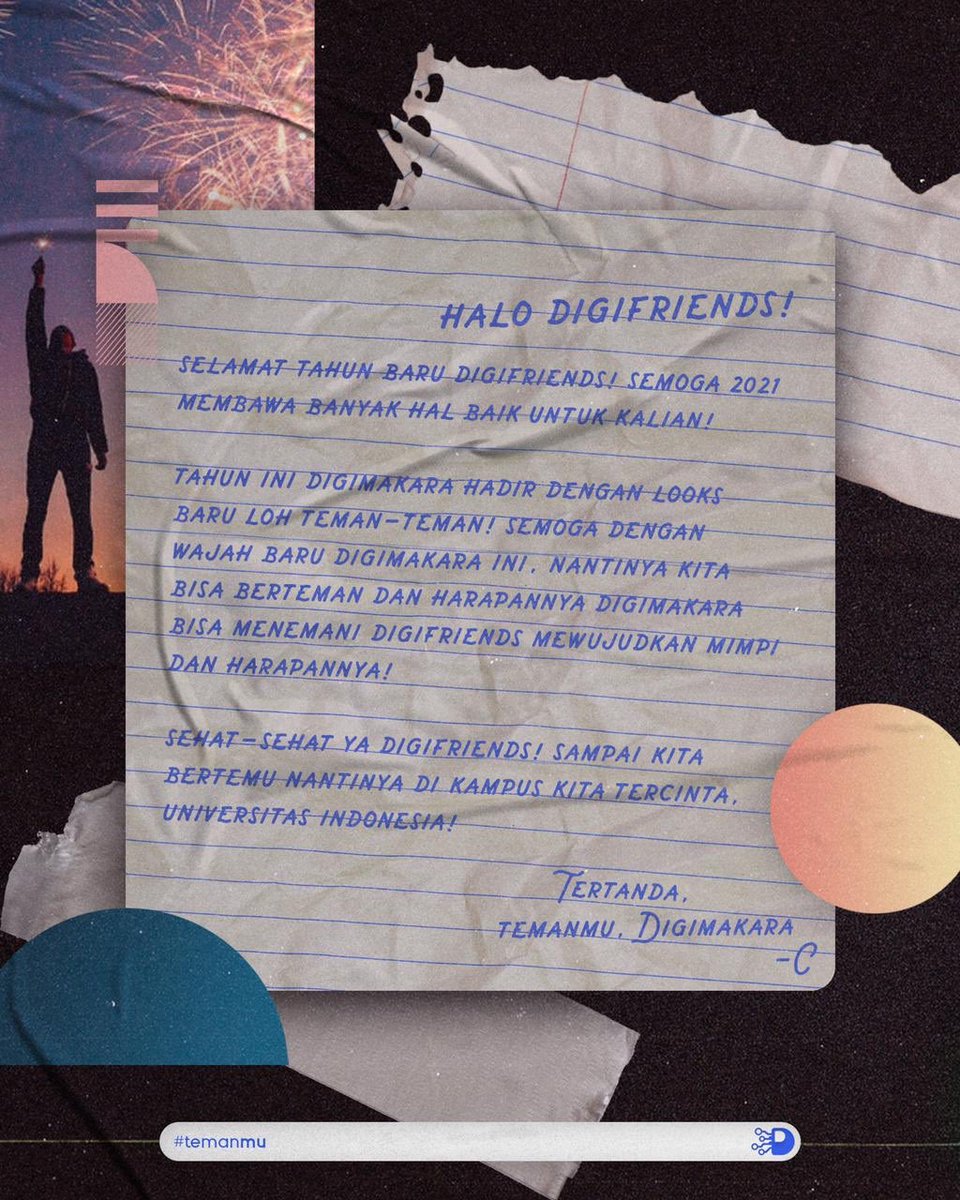 HALO DIGIFRIENDS!
SELAMAT TAHUN BARU DIGIFRIENDS! SEMOGA 2021
MEMBAWA BANYAK HAL BAIK UNTUK KALIAN!
TAHUN INI DIGIMAKARA HADIR DENGAN LOOKS
BARU LOH TEMAN-TEMAN! SEMOGA DENGAN
WAJAH BARU DIGIMAKARA INI, NANTINYA KITA
BISA BERTEMAN DAN HARAPANNYA DIGIMAKARA
BISA MENEMANI DIGIFRIENDS MEWUJUDKAN MIMPI
DAN HARAPANNYA!
SEHAT-SEHAT YA DIGIFRIENDS! SAMPAI KITA
BERTEMU NANTINYA DI KAMPUS KITA TERCINTA,
UNIVERSITAS INDONESIA!
TERTANDA,
TEMANMU, DIGIMAKARA
-C
#temanmu